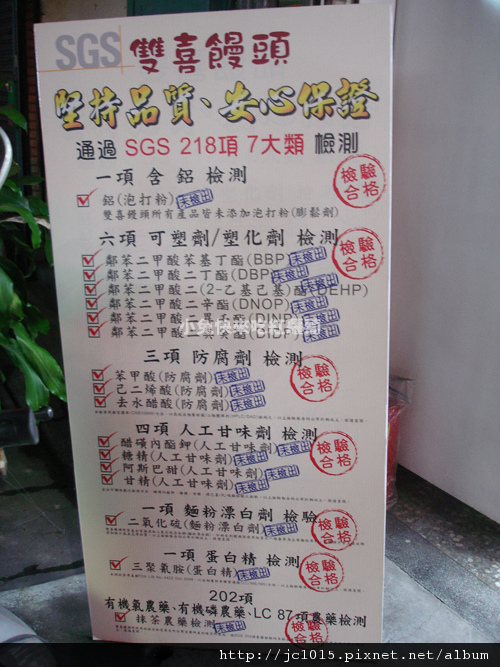 SGS 雙喜饅頭
堅持品質、安心保證
通過 SGS 218項 7大類 檢測
一項 含 鋁 檢測
檢驗合格
鋁(泡打粉) 未檢出
雙喜饅頭所有產品皆未添加泡打粉(膨鬆劑)
六項 可塑劑/塑化劑 檢測
檢驗合格
鄰苯二甲酸苯基丁酯(BBP) 未檢出
鄰苯二甲酸二丁酯(DBP) 未檢出
鄰苯二甲酸二(2-乙基己基)酯(DEHP) 未檢出
鄰苯二甲酸二辛酯(DNOP) 未檢出
鄰苯二甲酸二異壬酯(DINP) 未檢出
鄰苯二甲酸二異癸酯(DIDP) 未檢出
三項 防腐劑 檢測
檢驗合格
苯甲酸(防腐劑) 未檢出
己二烯酸(防腐劑) 未檢出
去水醋酸(防腐劑) 未檢出
四項 人工甘味劑 檢測
檢驗合格
醋磺內酯鉀(人工甘味劑) 未檢出
糖精(人工甘味劑) 未檢出
阿斯巴甜(人工甘味劑) 未檢出
甘精(人工甘味劑) 未檢出
一項 麵粉漂白劑 檢驗
檢驗合格
二氧化硫(麵粉漂白劑) 未檢出
一項 蛋白精 檢測
檢驗合格
三聚氰胺(蛋白精) 未檢出
202項
有機氯農藥、有機磷農藥、LC 87項農藥檢測
抹茶農藥檢測 未檢出
檢驗合格
http://jc1015.pixnet.net/album